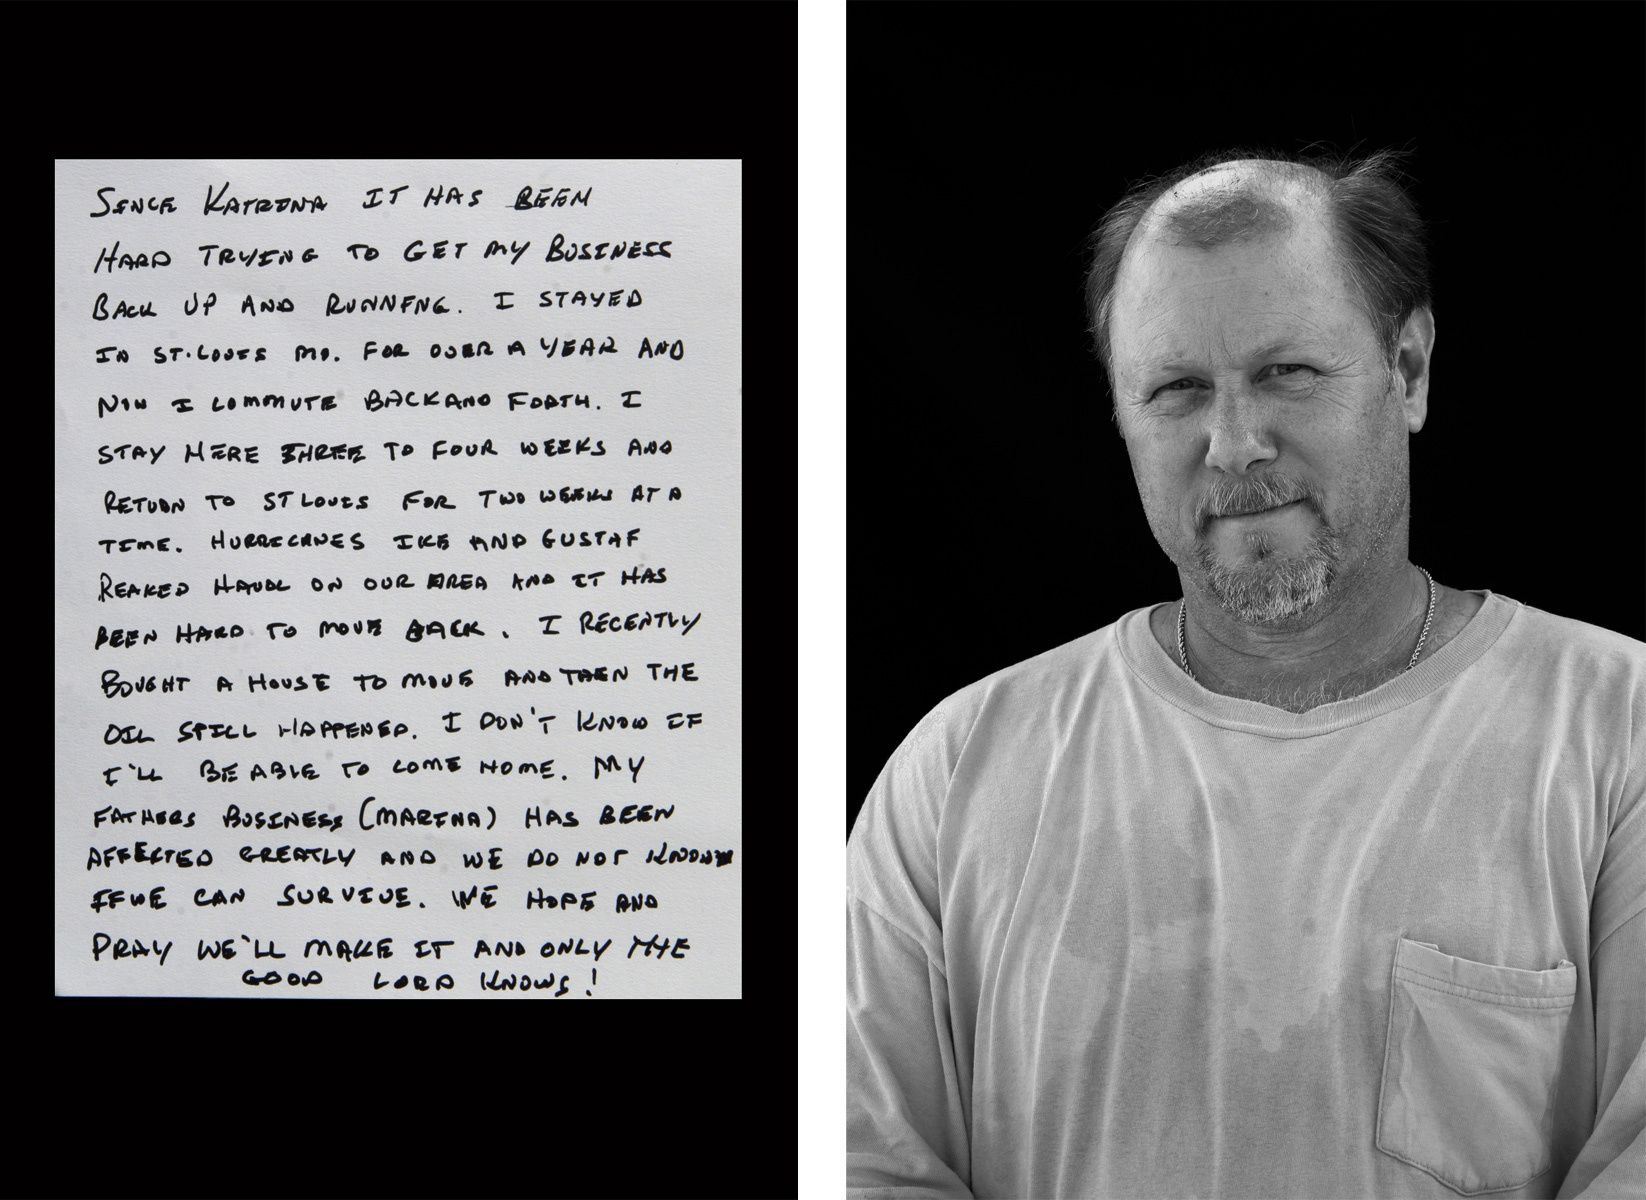 SINCE KATRINA IT HAS BEEN
HARD TRYING TO GET MY BUSINESS
BACK UP AND RUNNING. I STAYED
IN ST. LOUIS MO. FOR OVER A YEAR AND
NOW I COMMUTE BACK AND FORTH. I
STAY HERE THREE TO FOUR WEEKS AND
RETURN TO ST LOUIS FOR TWO WEEKS AT A
TIME. HURRICANES IKE AND GUSTAF
REAKED HAVOC ON OUR AREA AND IT HAS
BEEN HARD TO MOVE BACK. I RECENTLY
BOUGHT A HOUSE TO MOVE AND THEN THE
OIL SPILL HAPPENED. I DON'T KNOW IF
I'LL BE ABLE TO COME HOME. MY
FATHERS BUSINESS (MARINA) HAS BEEN
AFFECTED GREATLY AND WE DO NOT KNOW
IF WE CAN SURVIVE. WE HOPE AND
PRAY WE'LL MAKE IT AND ONLY THE
GOOD LORD KNOWS!